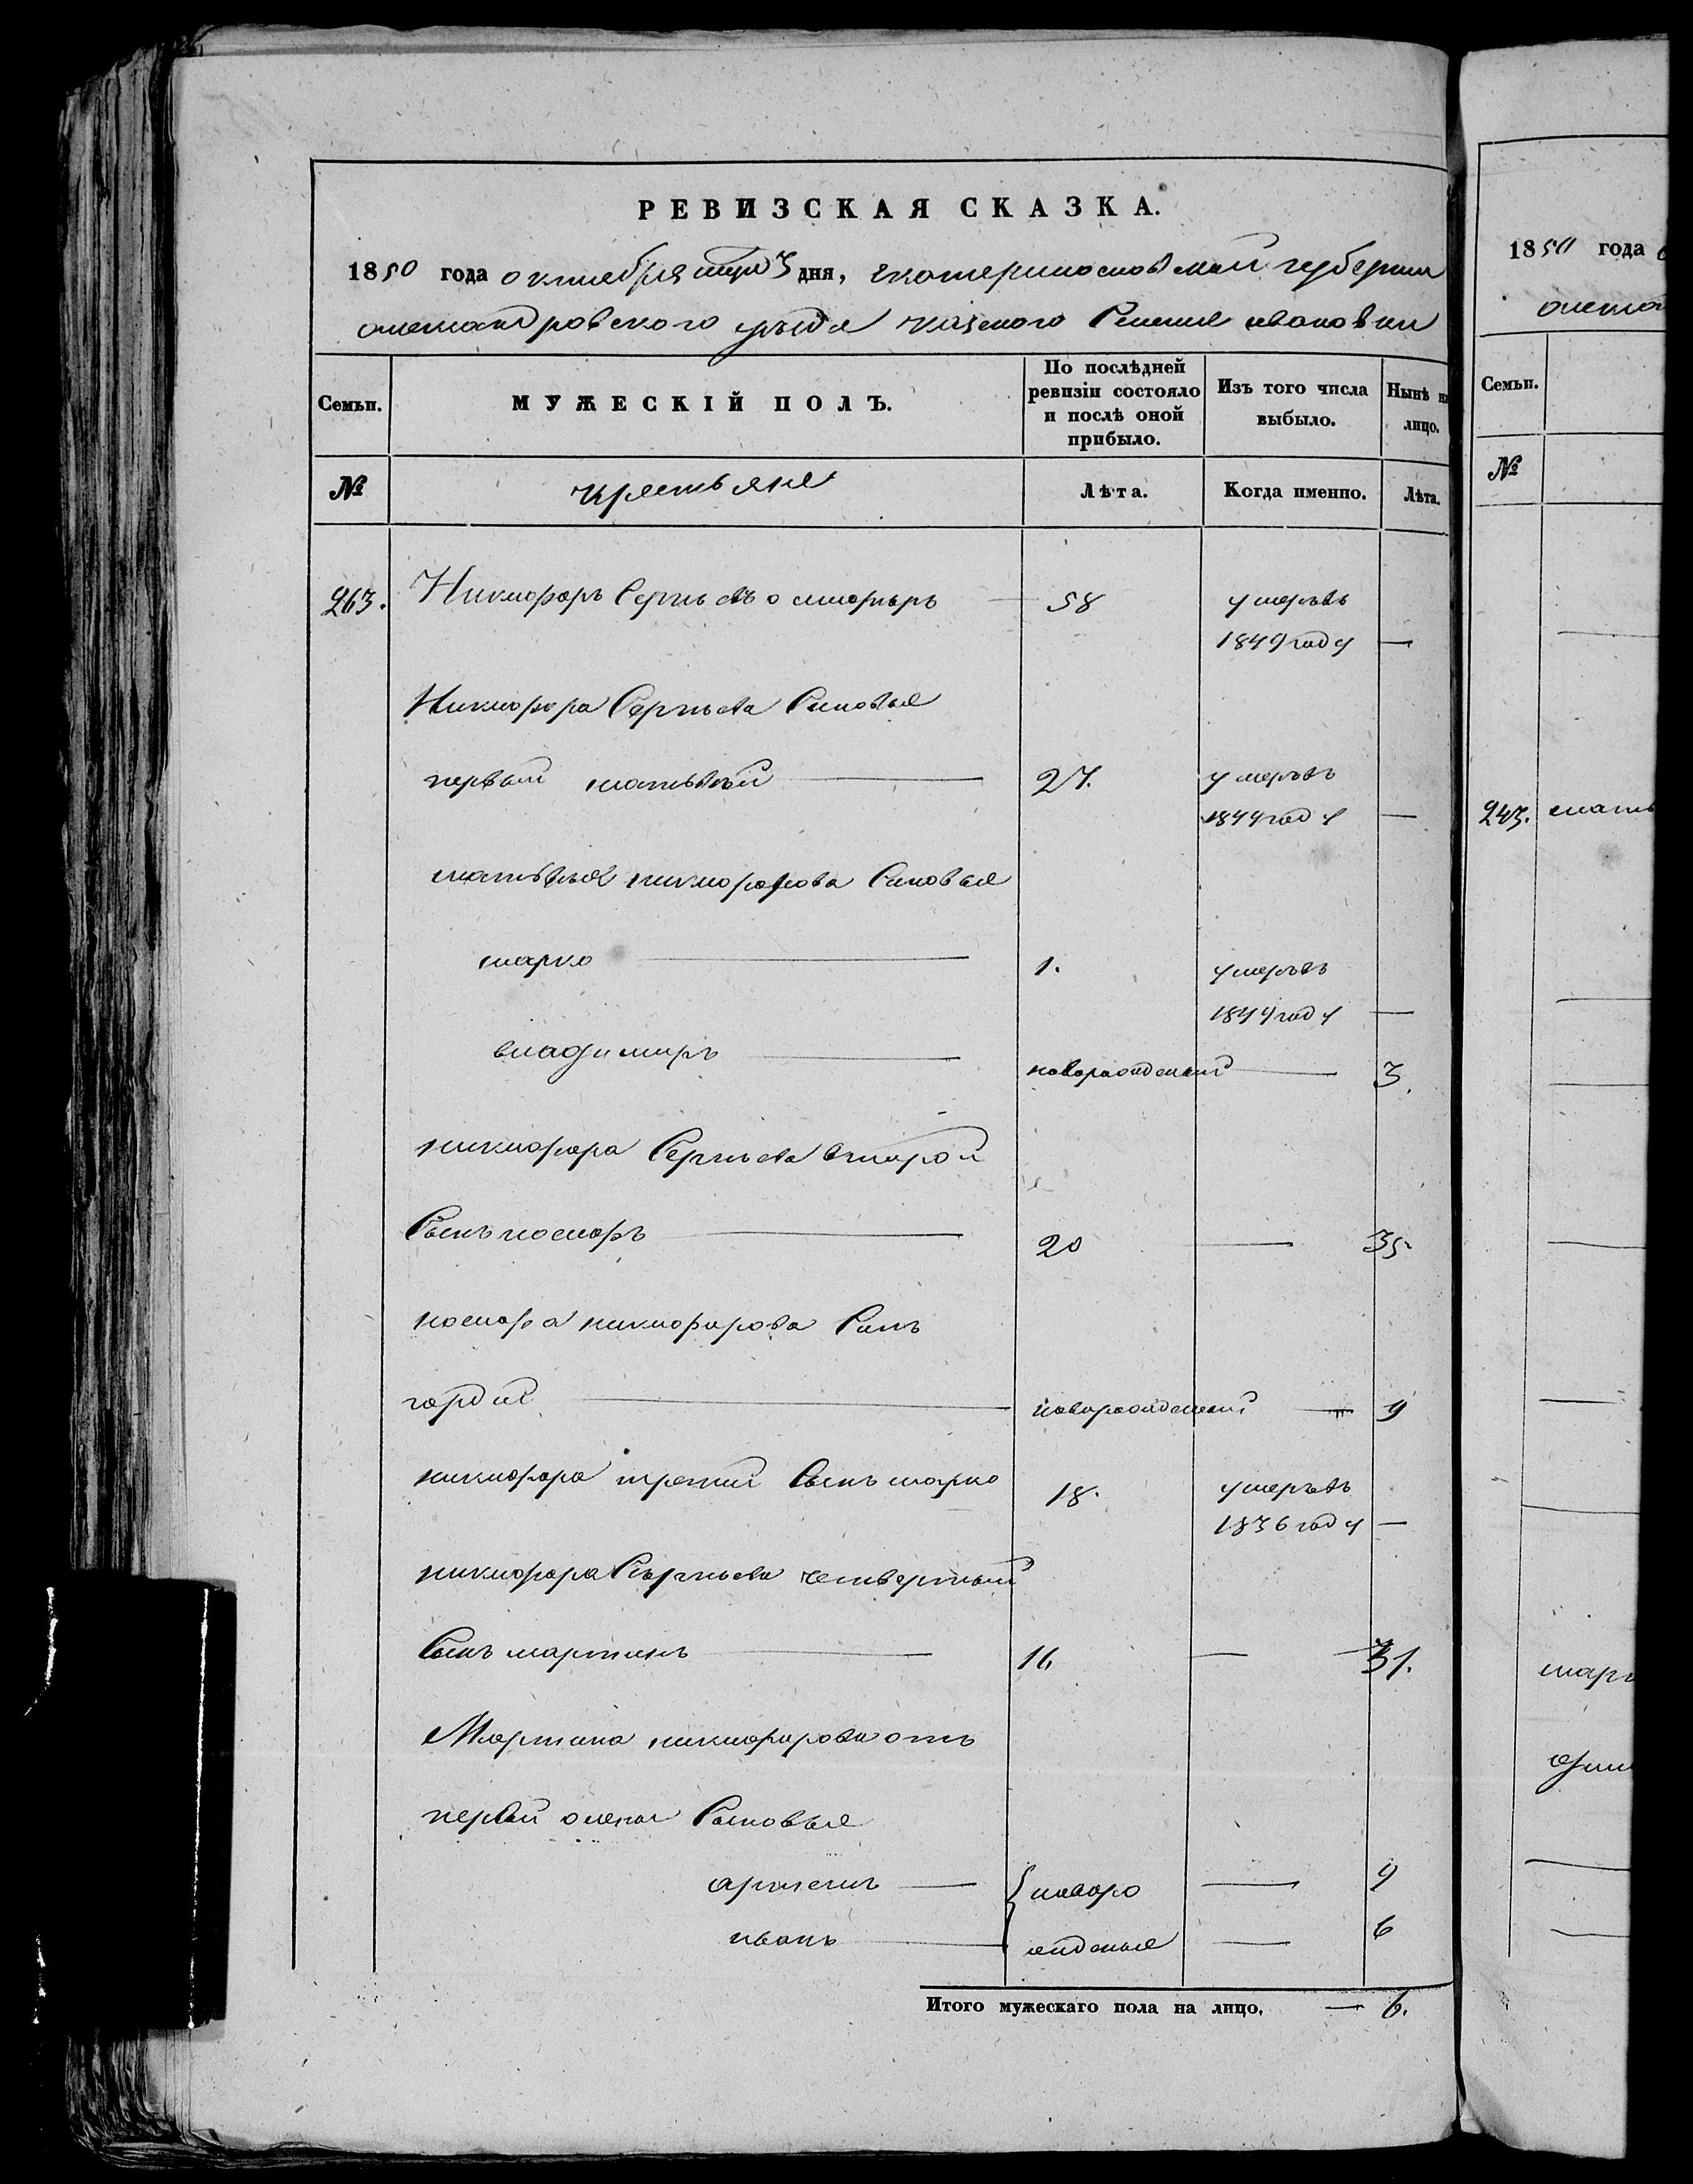 РЕВИЗСКАЯ СКАЗКА.
1850 года октября 3 дня, екатеринославской губернии
александровского уезда казеного Селение ивановки
Семьи.
МУЖЕСКІЙ ПОЛЪ.
По послѣдней ревизіи состояло и послѣ оной прибыло.
Изъ того числа выбыло.
Нынѣ на лицо.
№
крестьяне
Лѣта.
Когда именно.
Лѣта.
263. Никифоръ Сергѣевъ 58 умерътъ
1849 году —
Никифора Сергѣева Синовья
первый матвѣй 27. умерътъ
1849 году —
матвѣя никифорова Синовья
марко 1. умерътъ
1849 году —
владимиръ новорожденый 3.
никифора Сергѣева второй
Сынъ космаръ 20 — 35.
космара никифорова Синъ
гордий новорожденый — 9
никифора третий Сынъ марко 18. умерътъ
1836 году —
никифора Сергѣева четвертый
Сынъ мартинъ 16 — 31.
Мартина никифорова отъ
первой жены Сыновья
артемъ — новоро — 9
иванъ жденые — 6
Итого мужескаго пола на лицо, — 6.
1850 года
Семьи.
№
243. матв